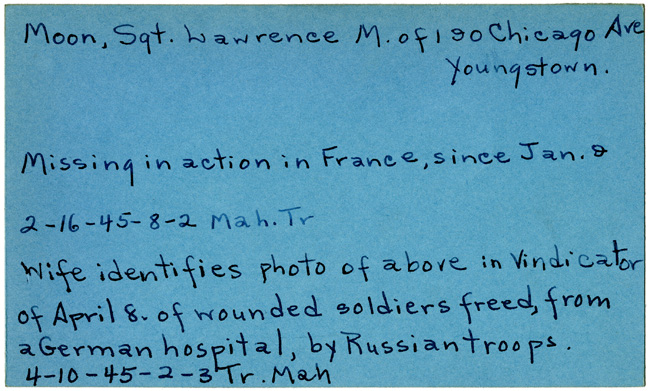 Moon, Sgt. Lawrence M. of 190 Chicago Ave
Youngstown.
Missing in action in France, since Jan. 9
2-16-45-8-2 Mah. Tr
Wife identifies photo of above in Vindicator
of April 8. of wounded soldiers freed, from
a German hospital, by Russian troops.
4-10-45-2-3 Tr. Mah